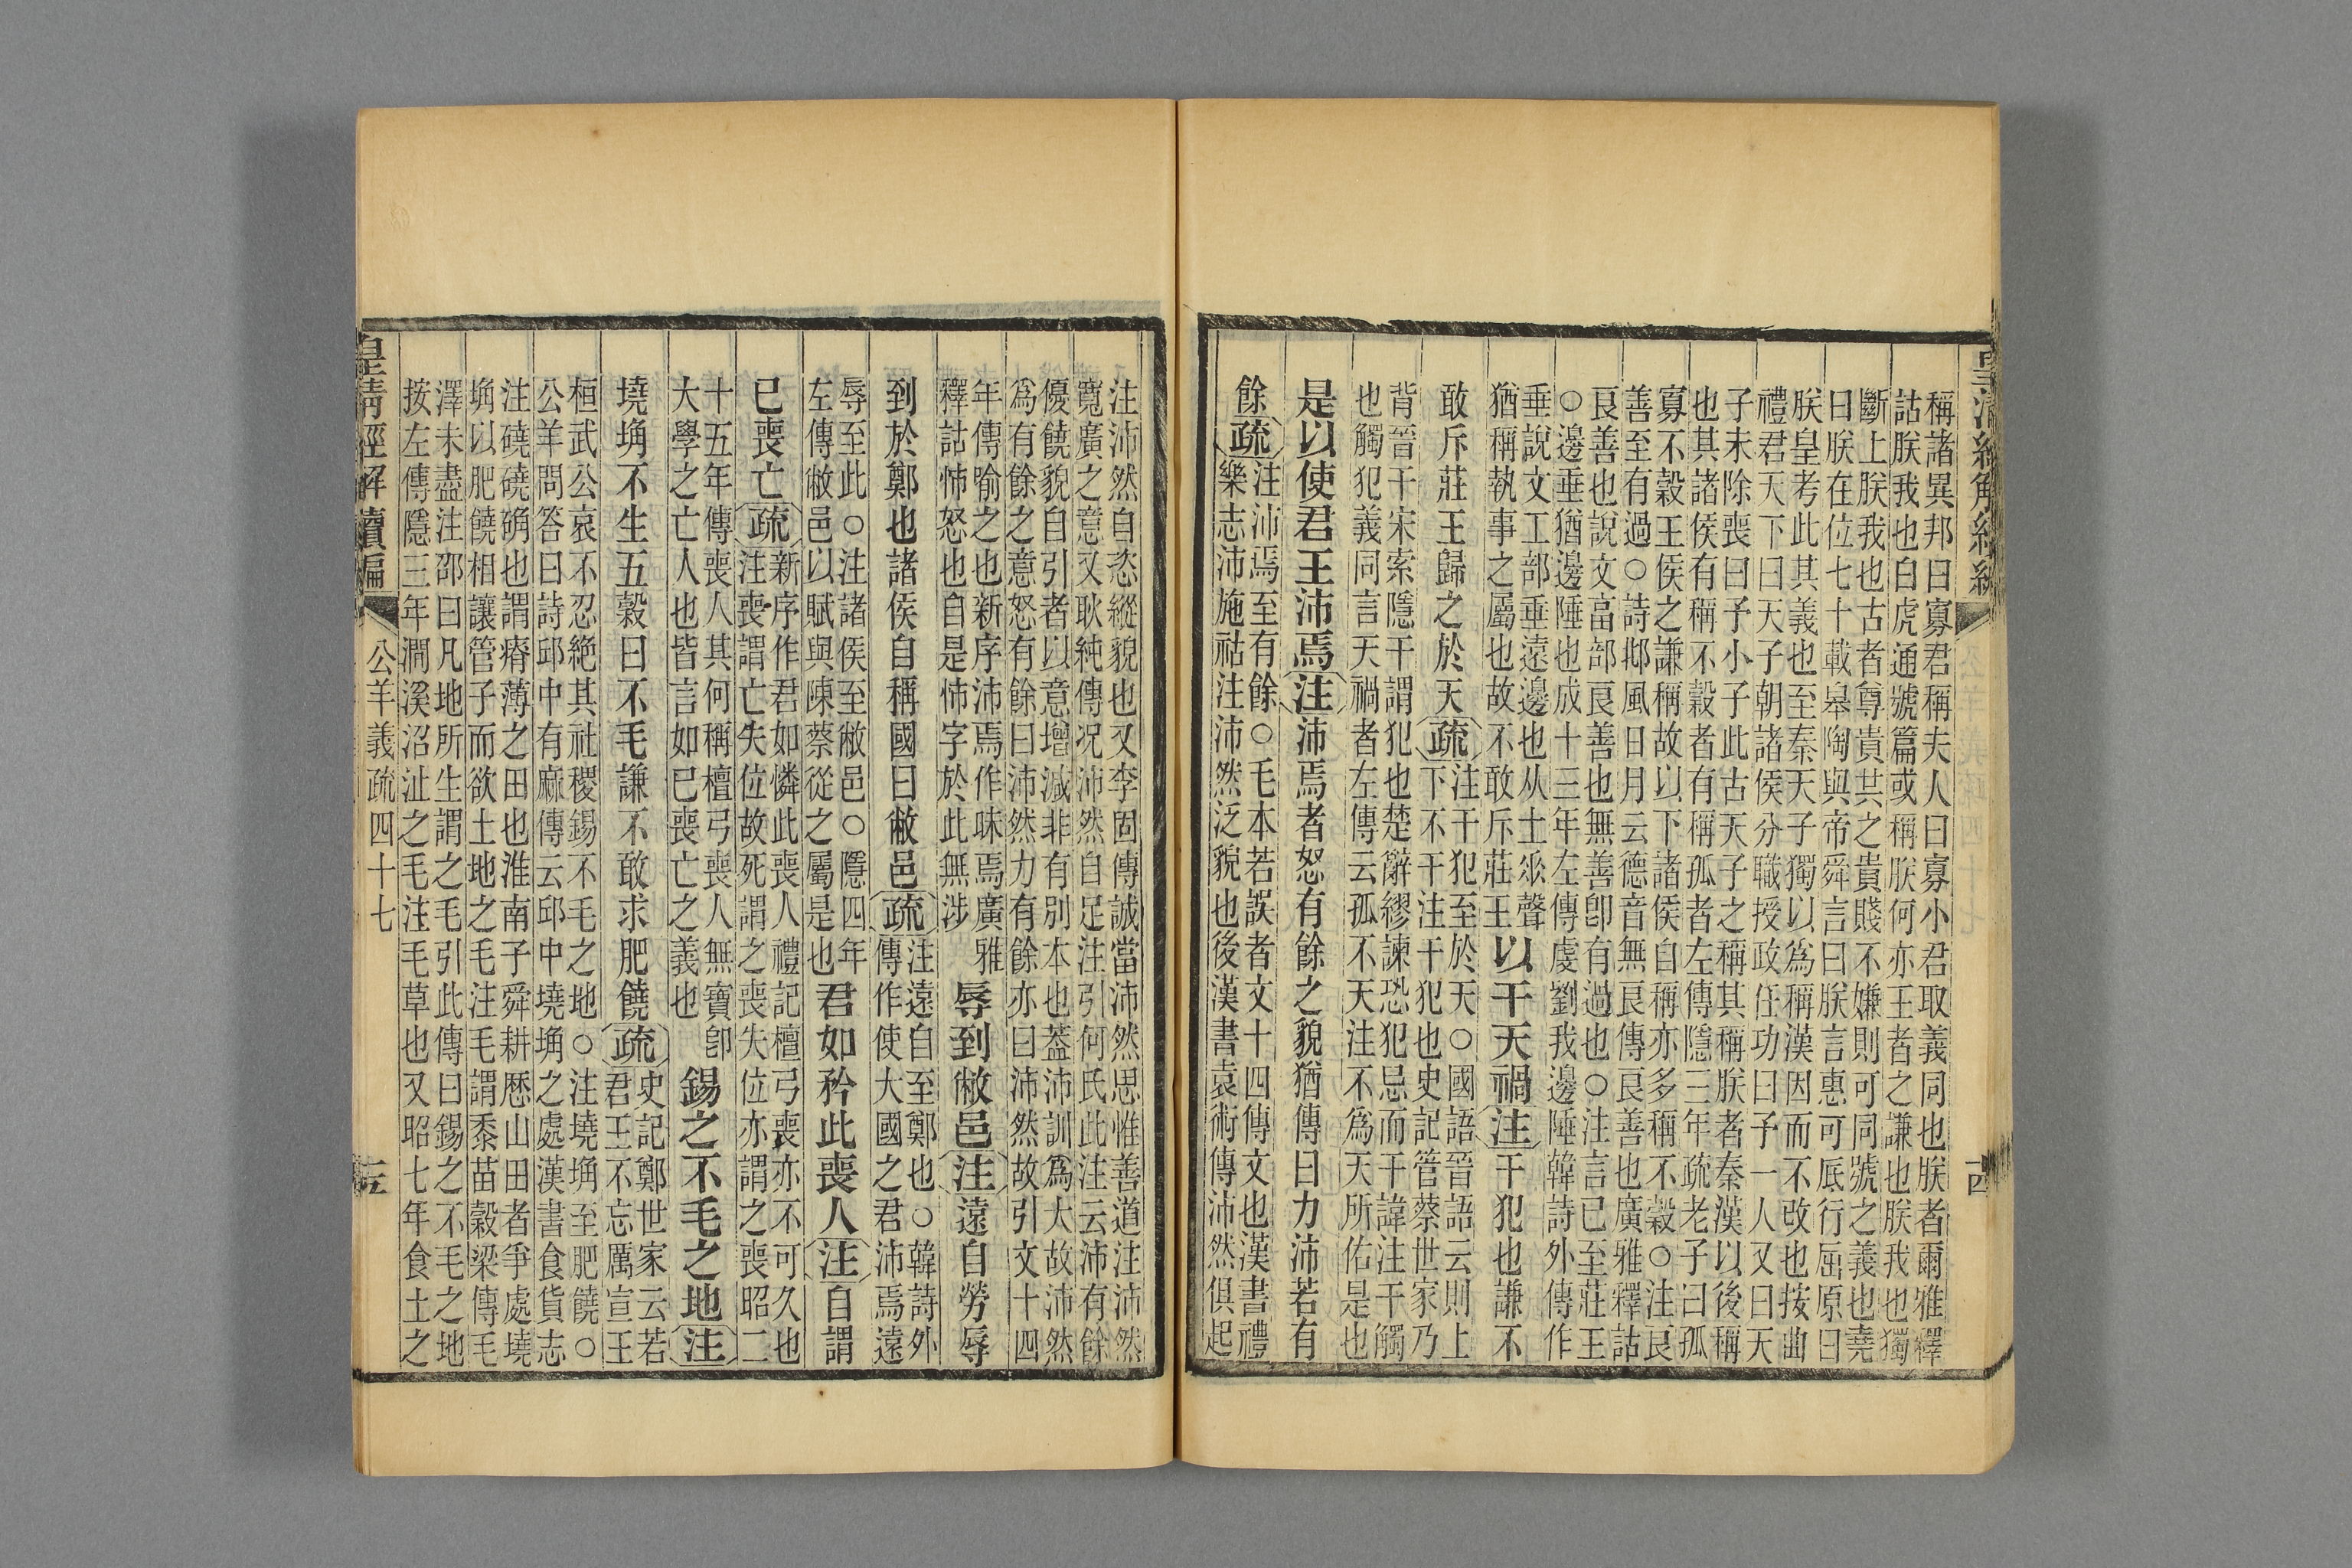 皇清經解續編
稱諸異邦曰寡君稱夫人曰寡小君取義同也朕者爾雅釋
詁朕我也白虎通號篇或稱朕何亦王者之謙也朕我也獨
斷上朕我也古者尊貴共之貴賤不嫌則可同號之義也堯
曰朕在位七十載皋陶與帝舜言曰朕言惠可底行屈原曰
朕皇考此其義也至秦天子獨以為稱漢因而不改也按曲
禮君天下曰天子朝諸侯分職授政任功曰予一人又曰天
子未除喪曰予小子此古天子之稱其稱朕者秦漢以後稱
也其諸侯有稱不穀者有稱孤者左傳隱三年疏老子曰孤
寡不穀王侯之謙稱故以下諸侯自稱亦多稱不穀○注良
善至有過○詩邶風日月云德音無良傳良善也廣雅釋詁
良善也說文畗部良善也無善卽有過也○注言已至莊王
○邊垂猶邊陲也成十三年左傳虔劉我邊陲韓詩外傳作
垂說文土部垂遠邊也从土𠂹聲以干天禍注干犯也謙不
猶稱執事之屬也故不敢斥莊王
敢斥莊王歸之於天疏注干犯至於天○國語晉語云則上
下不干注干犯也史記管蔡世家乃
背晉干宋索隱干謂犯也楚辭繆諫恐犯忌而干諱注干觸
也觸犯義同言天禍者左傳云孤不天注不為天所佑是也
是以使君王沛焉注沛焉者怒有餘之貌猶傳曰力沛若有
餘疏注沛焉至有餘○毛本若誤者文十四傳文也漢書禮
樂志沛施祜注沛然泛貌也後漢書袁術傳沛然俱起
十四
注沛然自恣縱貌也又李固傳誠當沛然思惟善道注沛然
寬廣之意又耿純傳況沛然自足注引何氏此注云沛有餘
優饒貌自引者以意增減非有別本也蓋沛訓為大故沛然
為有餘之意怒有餘曰沛然力有餘亦曰沛然故引文十四
年傳喻之也新序沛焉作昧焉廣雅
釋詁怖怒也自是怖字於此無涉
辱到敝邑注遠自勞辱
到於鄭也諸侯自稱國曰敝邑疏注遠自至鄭也○韓詩外
傳作使大國之君沛焉遠
辱至此○注諸侯至敝邑○隱四年
左傳敝邑以賦與陳蔡從之屬是也
君如矜此喪人注自謂
已喪亡疏新序作君如憐此喪人禮記檀弓喪亦不可久也
注喪謂亡失位故死謂之喪失位亦謂之喪昭二
十五年傳喪人其何稱檀弓喪人無寶卽
大學之亡人也皆言如已喪亡之義也
錫之不毛之地注
墝埆不生五穀曰不毛謙不敢求肥饒疏史記鄭世家云若
君王不忘厲宣王
桓武公哀不忍絶其社稷錫不毛之地○注墝埆至肥饒○
公羊問答曰詩邱中有麻傳云邱中墝埆之處漢書食貨志
注磽磽确也謂瘠薄之田也淮南子舜耕歷山田者爭處墝
埆以肥饒相讓管子而欲土地之毛注毛謂黍苗穀梁傳毛
澤未盡注邵曰凡地所生謂之毛引此傳曰錫之不毛之地
按左傳隱三年澗溪沼沚之毛注毛草也又昭七年食土之
皇清經解續編
公羊義疏四十七
十五